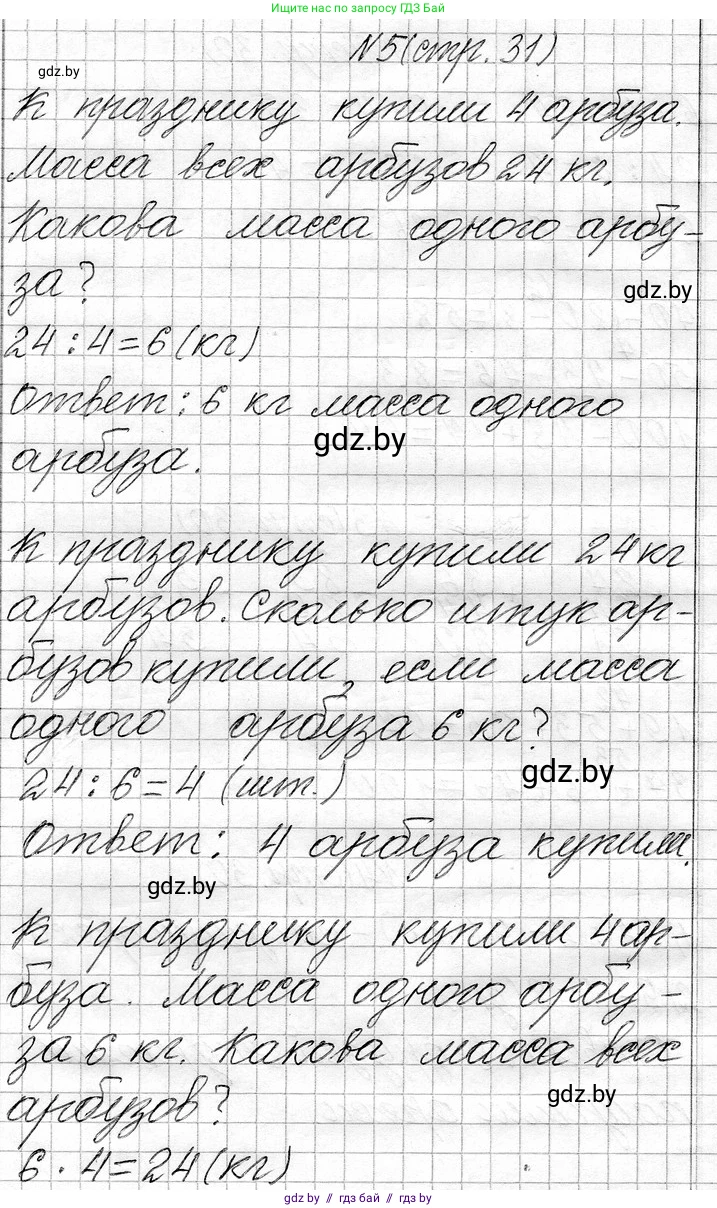 Ищите нас по запросу ГДЗ Бай
N5 (стр. 31)
gdz.by
К празднику купили 4 арбуза.
Масса всех арбузов 24 кг.
Какова масса одного арбу-
за?
gdz.by
24 : 4 = 6 (кг)
Ответ: 6 кг масса одного
gdz.by
арбуза.
К празднику купили 24 кг
арбузов. Сколько штук ар-
бузов купили, если масса
одного арбуза 6 кг?
24 : 6 = 4 (шт.)
gdz.by
Ответ: 4 арбуза купили.
gdz.by
К празднику купили 4 ар-
буза. Масса одного арбу-
за 6 кг. Какова масса всех
арбузов?
gdz.by
6 · 4 = 24 (кг)
gdz.by // гдз бай // gdz.by